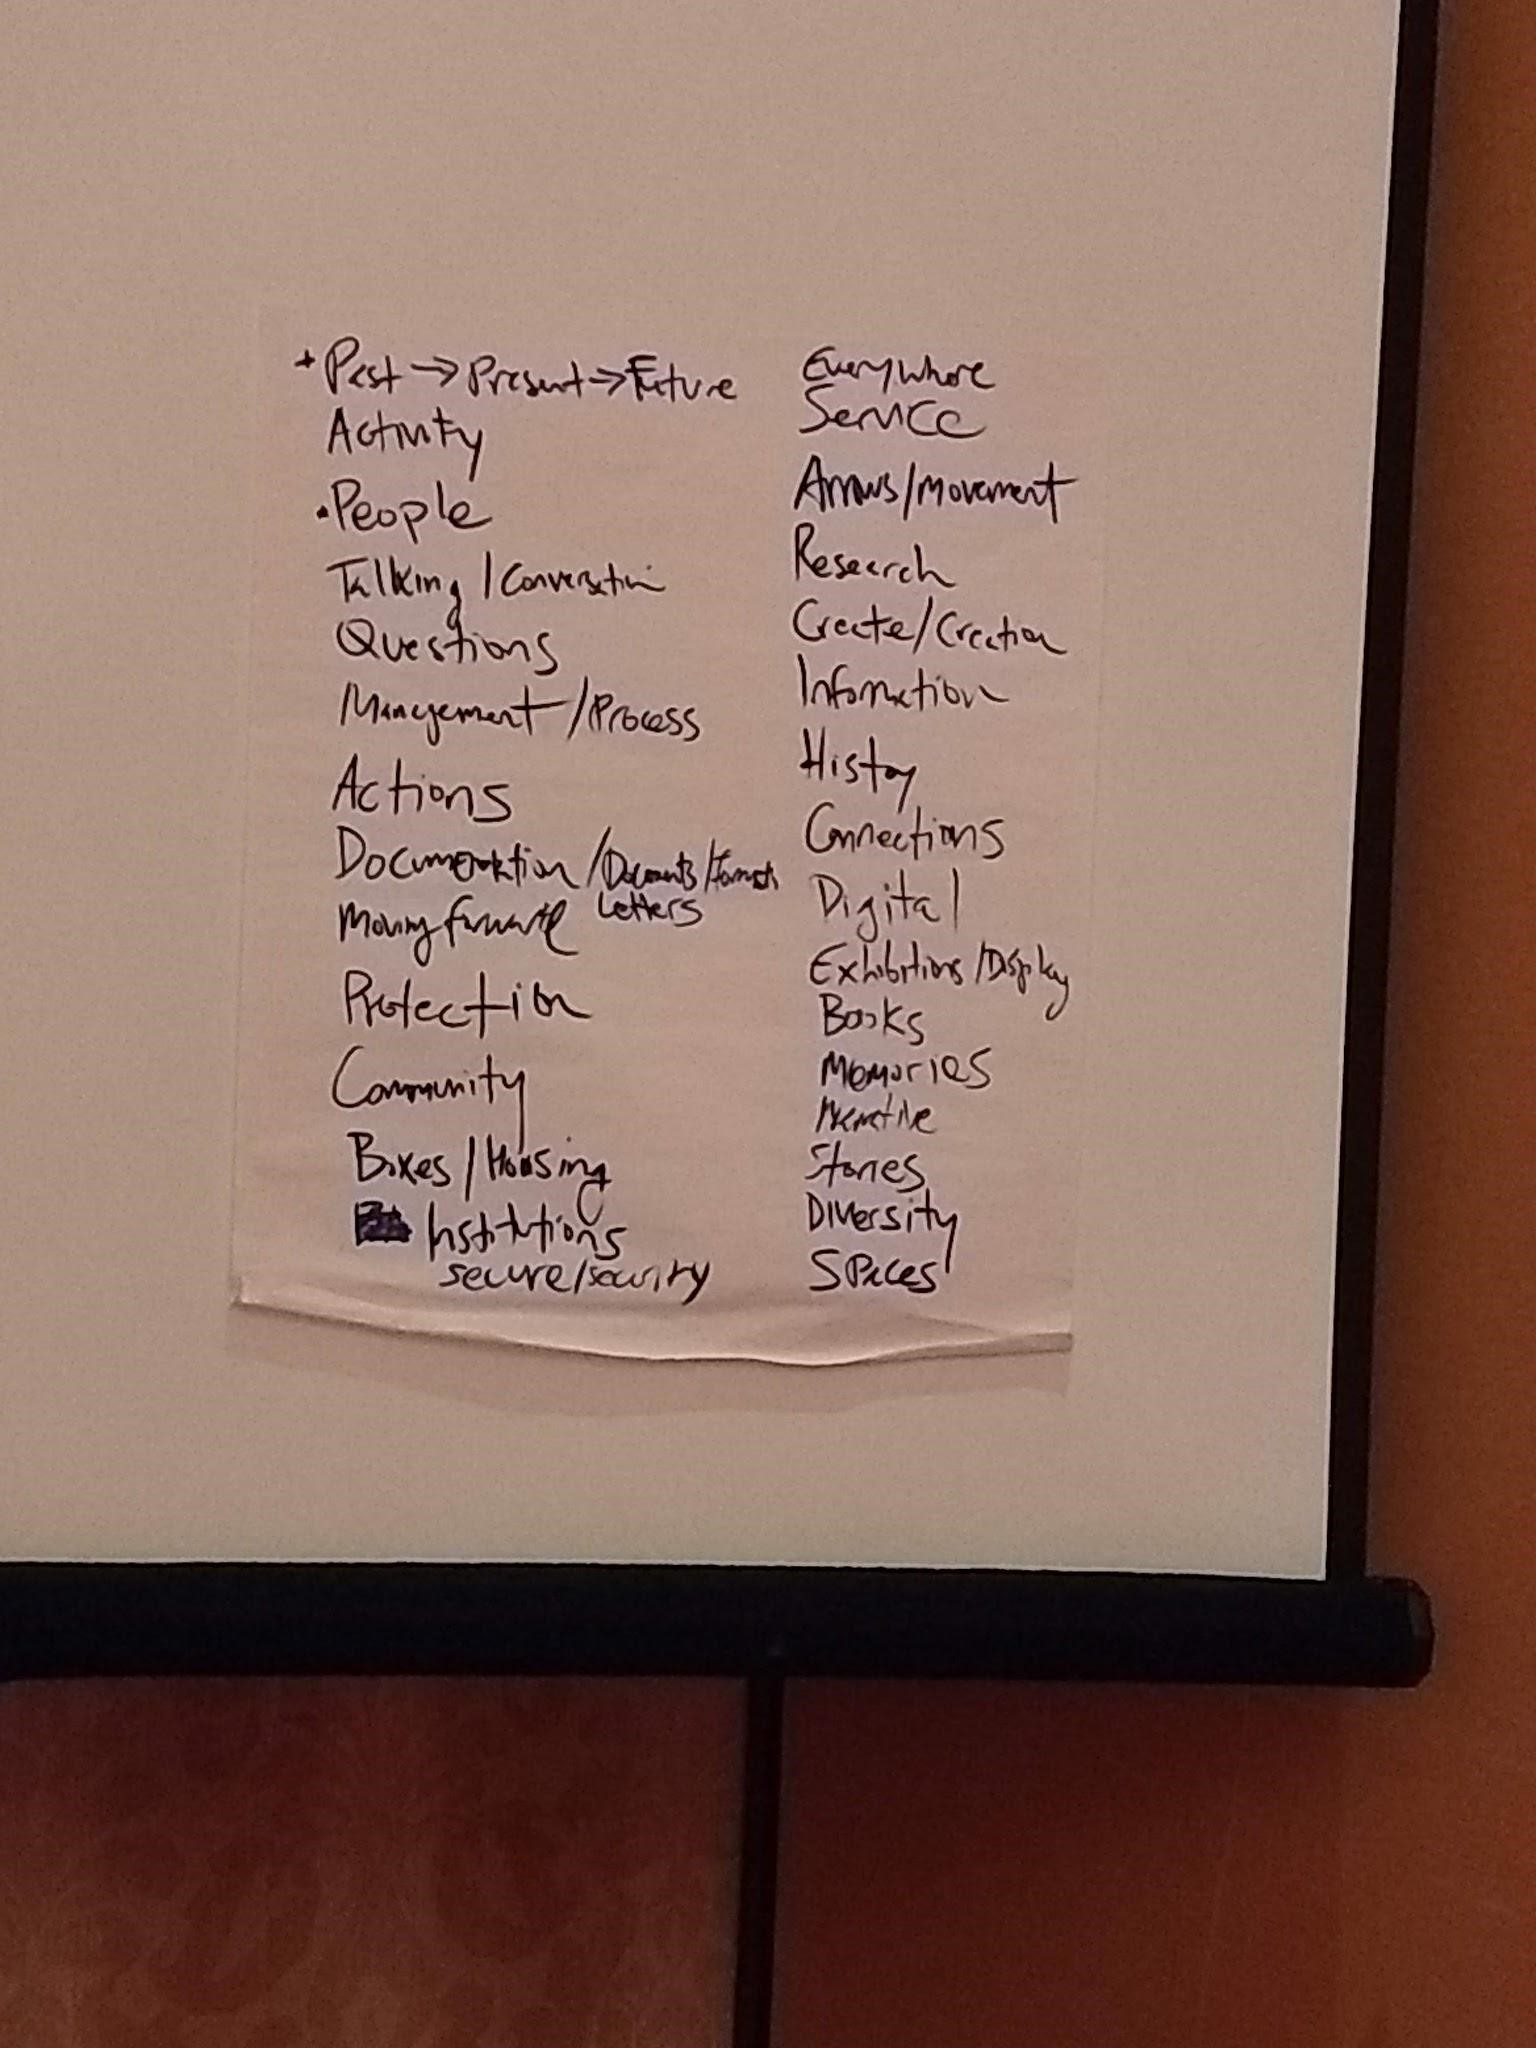 + Past → Present → Future
Activity
. People
Talking / Conversation
Questions
Management / Process
Actions
Documentation / Documents / Formats
Letters
Moving forward
Protection
Community
Boxes / Housing
Institutions
secure / security
Everywhere
Service
Arrows / movement
Research
Create / Creation
Information
History
Connections
Digital
Exhibitions / Display
Books
Memories
Narrative
Stories
Diversity
Spaces